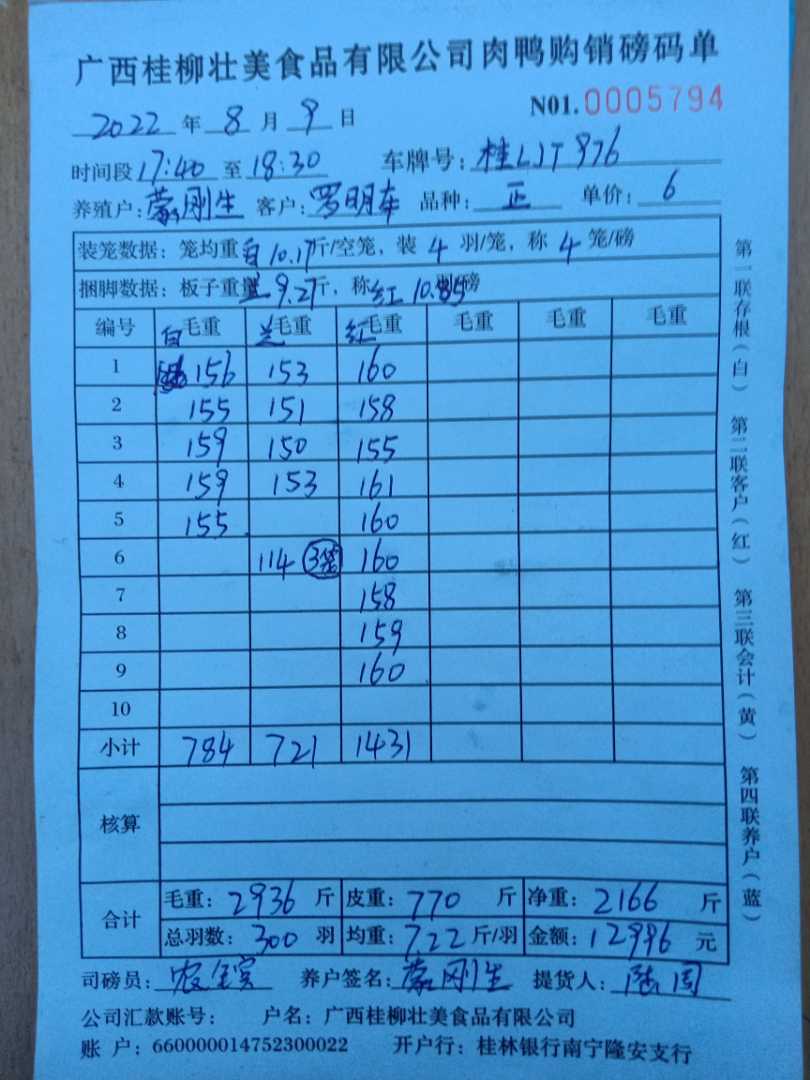 广西桂柳壮美食品有限公司肉鸭购销磅码单
2022年8月9日 N01.0005794
时间段17:40至18:30 车牌号:桂LJT976
养殖户:蒙刚生 客户:罗明车 品种:正 单价:6
装笼数据:笼均重白10.17斤/空笼,装4羽/笼,称4笼/磅
捆脚数据:板子重兰9.27斤,称红10.85磅
编号 白毛重 兰毛重 红毛重 毛重 毛重 毛重
1 156 153 160
2 155 151 158
3 159 150 155
4 159 153 161
5 155 160
6 114 3笼 160
7 158
8 159
9 160
10
小计 784 721 1431
核算
合计
毛重:2936斤 皮重:770斤 净重:2166斤
总羽数:300羽 均重:722斤/羽 金额:12996元
司磅员:农 养户签名:蒙刚生 提货人:陆周
公司汇款账号: 户名:广西桂柳壮美食品有限公司
账户:660000014752300022 开户行:桂林银行南宁隆安支行
第一联存根(白) 第二联客户(红) 第三联会计(黄) 第四联养户(蓝)